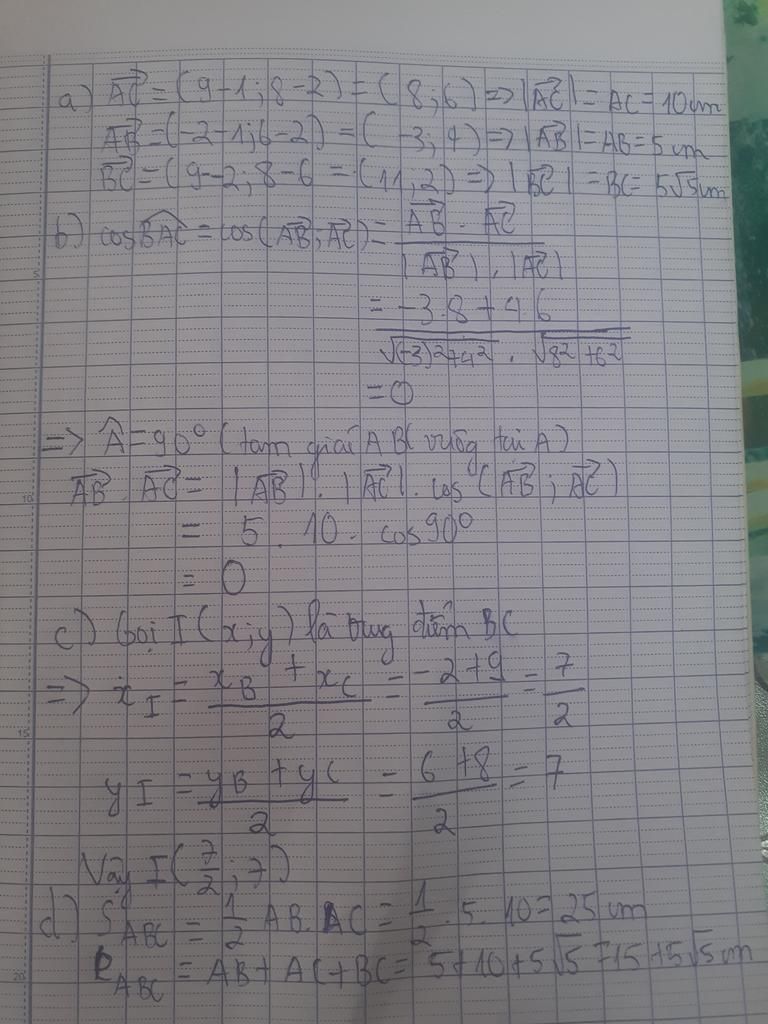 a) AC = (9-1; 8-2) = ( 8; 6) => |AC| = AC = 10cm
AB = (-2-1; 6-2) = ( -3; 4) => |AB| = AB = 5 cm
BC = (9--2; 8-6 = (11; 2) => |BC| = BC = 5√5cm
b) cosBAC = cos(AB; AC) = AB . AC
|AB| . |AC|
= -3.8 + 4.6
√(-3)²+4² . √8²+6²
= 0
=> Â = 90° (tam giaí ABC vuông tại A)
AB . AC = |AB| . |AC| . cos (AB ; AC)
= 5 . 10 . cos 90°
= 0
c) Gọi I (x;y) là trung điểm BC
=> x_I = x_B + x_C / 2 = -2+9 / 2 = 7 / 2
y_I = y_B + y_C / 2 = 6 +8 / 2 = 7
Vậy I (7/2 ; 7)
d) S_ABC = 1/2 AB. AC = 1/2 . 5. 10 = 25 cm
P_ABC = AB + AC + BC = 5 + 10 + 5√5 = 15 + 5√5 cm